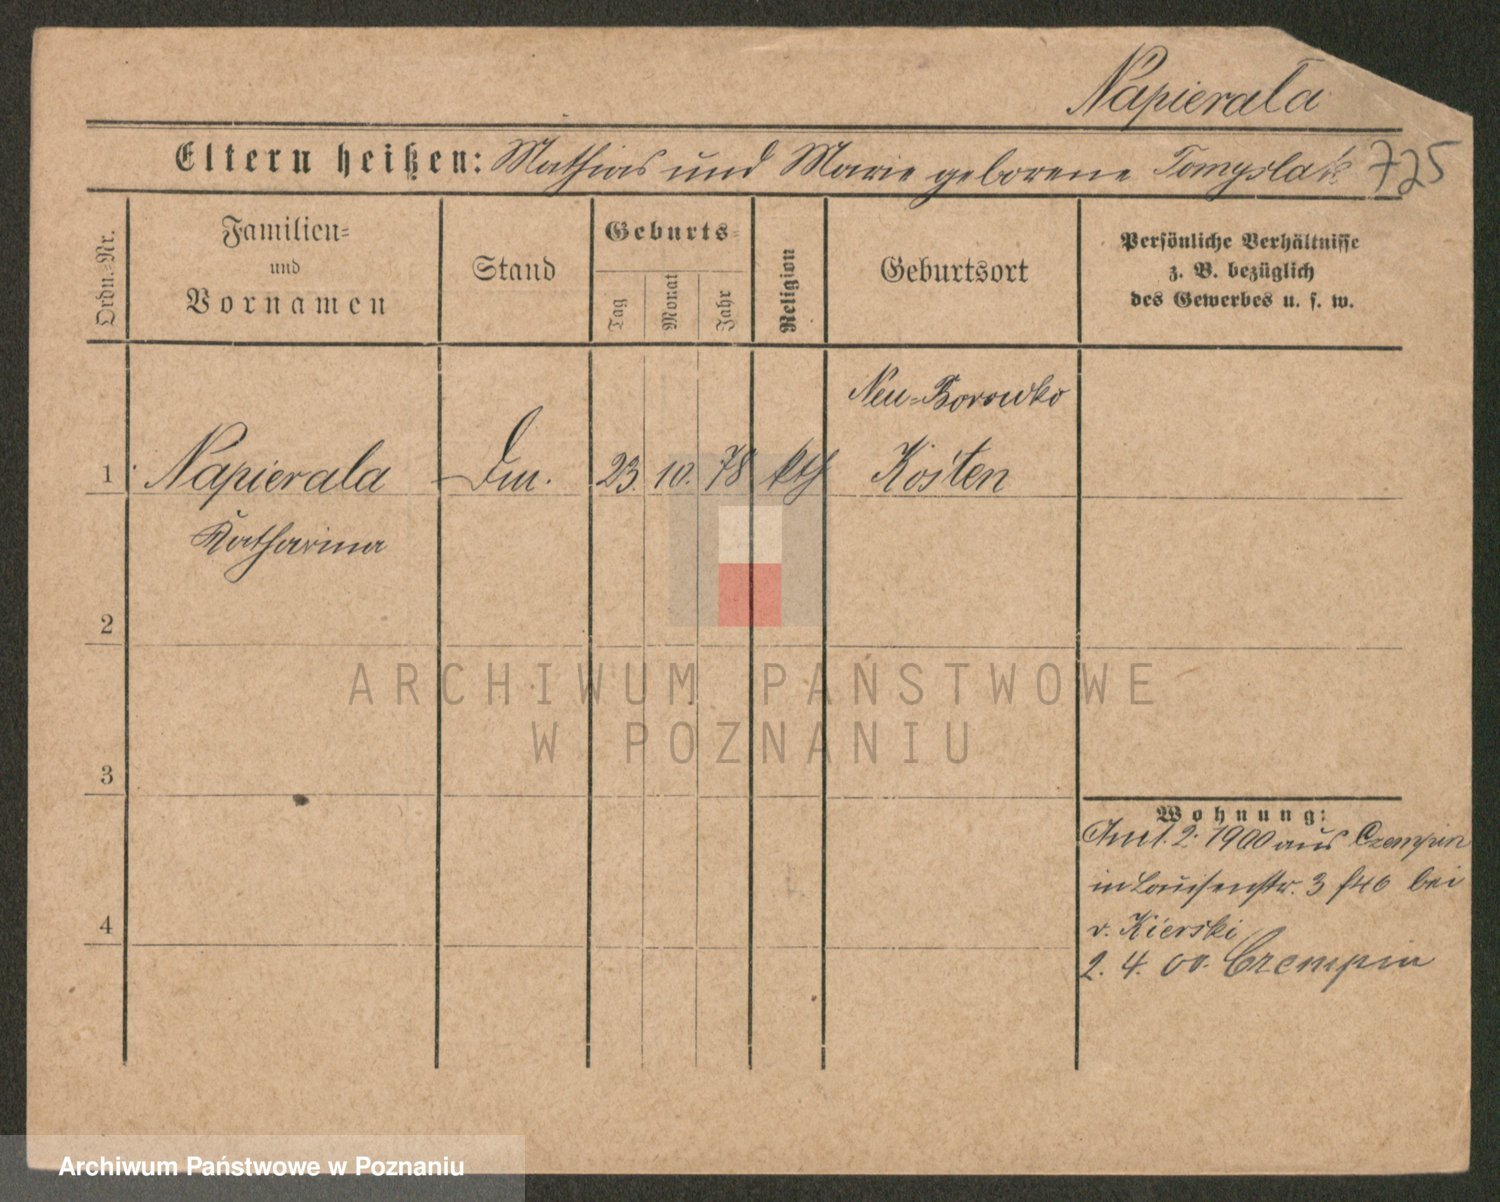 Napierała
Eltern heißen: Mathias und Marie geborene Tomyslak 725
Ordn.-Nr.
Familien-
und
Vornamen
Stand
Geburts-
Tag
Monat
Jahr
Religion
Geburtsort
Persönliche Verhältnisse
z. B. bezüglich
des Gewerbes u. s. w.
Neu-Borowko
1 Napierala Dm. 23. 10. 78 kth Kosten
Katharina
2
3
4
Wohnung:
2. 1900 aus Czempin
in Louisenstr. 3 bei
v. Kierski
2. 4. 00. Czempin
ARCHIWUM PAŃSTWOWE
W POZNANIU
Archiwum Państwowe w Poznaniu